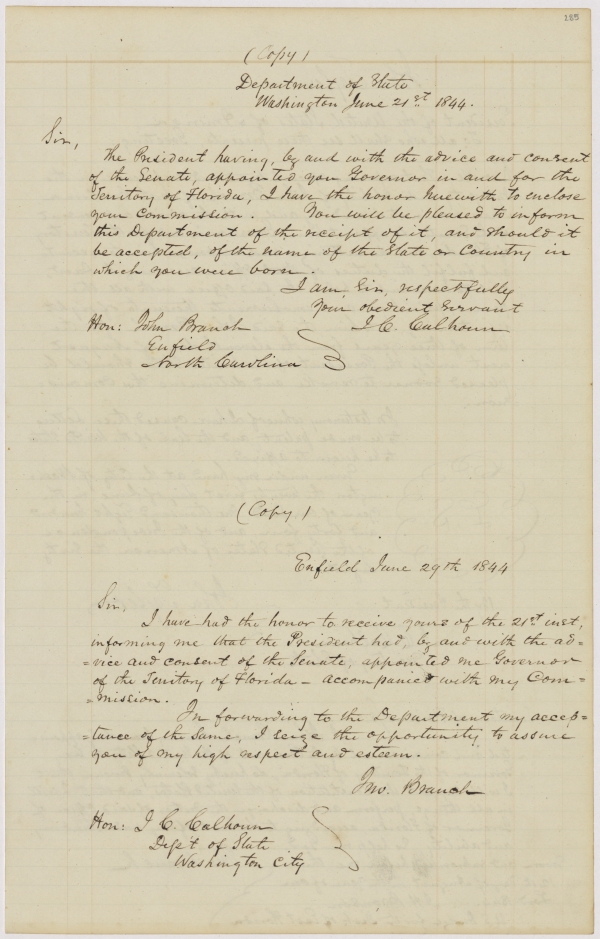 285
(Copy)
Department of State
Washington June 21st 1844.
Sir,
The President having, by and with the advice and consent
of the Senate, appointed you Governor in and for the
Territory of Florida, I have the honor herewith to enclose
your Commission. You will be pleased to inform
this Department of the receipt of it, and should it
be accepted, of the name of the State or Country in
which you were born.
I am, Sir, respectfully
Your obedient servant
J. C. Calhoun
Hon: John Branch
Enfield
North Carolina
(Copy)
Enfield June 29th 1844
Sir,
I have had the honor to receive yours of the 21st inst,
informing me that the President had, by and with the ad-
=vice and consent of the Senate, appointed me Governor
of the Territory of Florida - accompanied with my Com=
=mission.
In forwarding to the Department my accep=
=tance of the Same, I seize the opportunity to assure
you of my high respect and esteem.
Jno. Branch
Hon: J. C. Calhoun
Dep't of State
Washington City